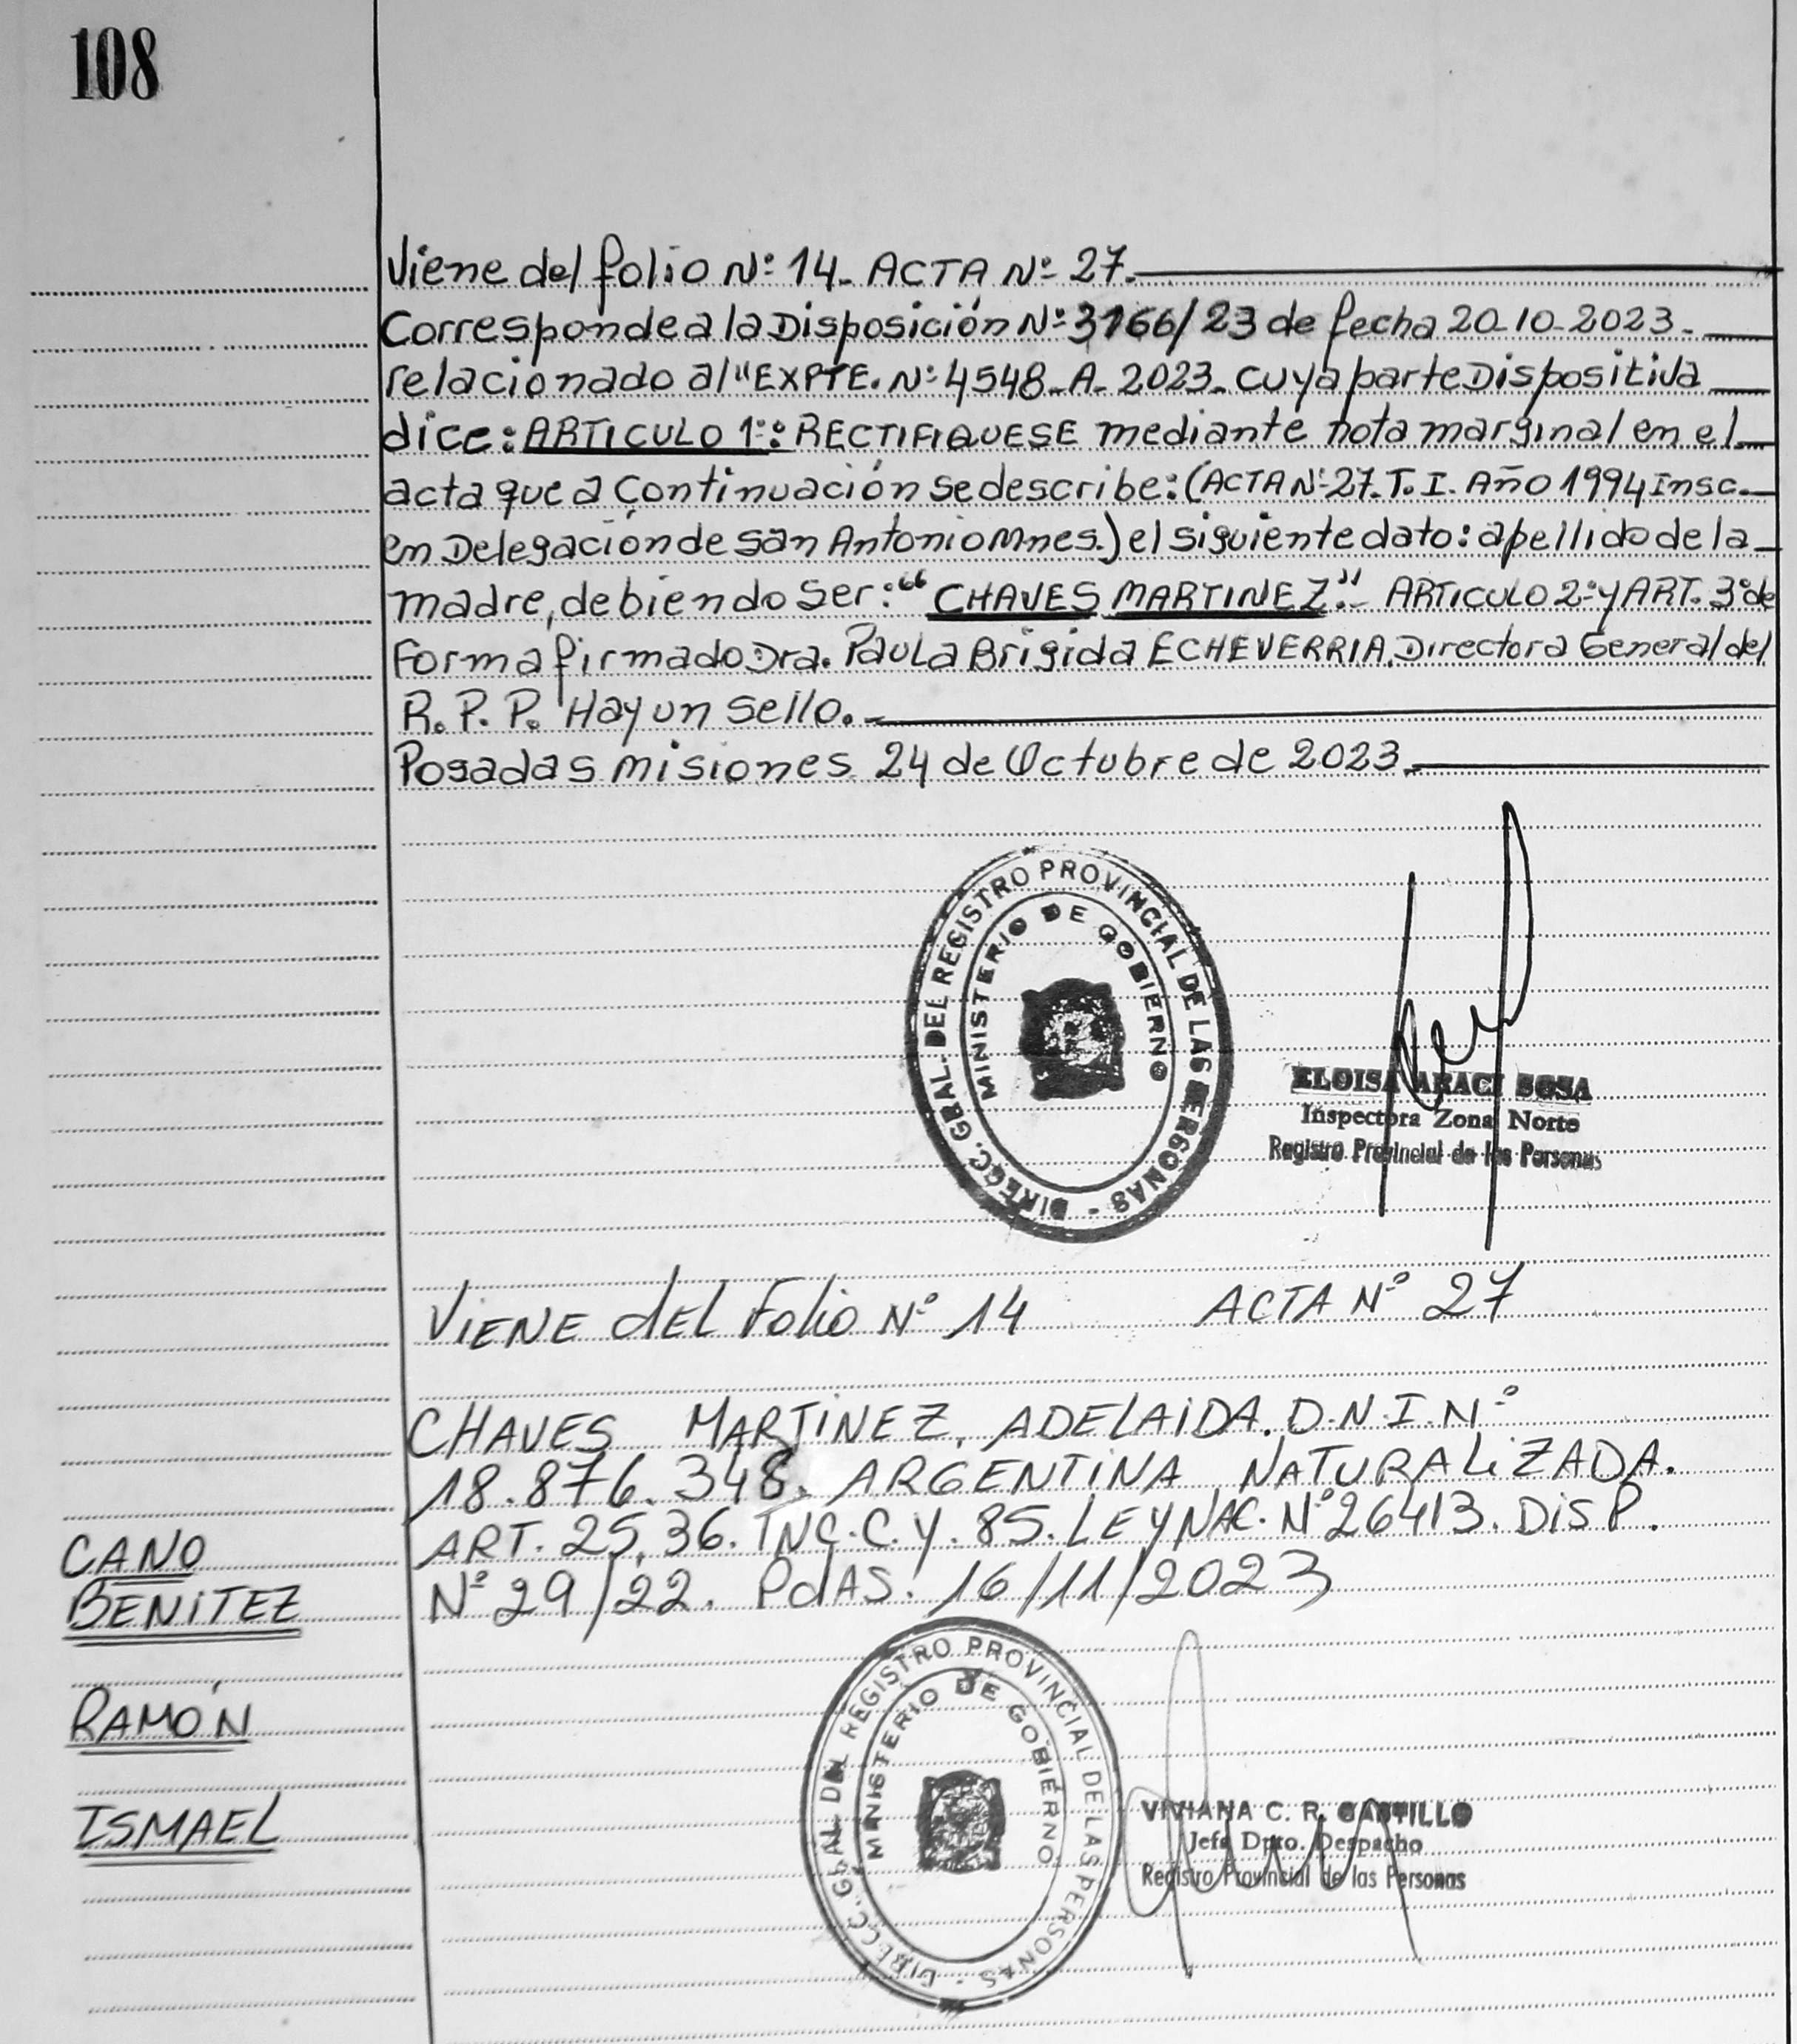 108
Viene del folio Nº 14. ACTA Nº 27.
Corresponde a la Disposición Nº 3166/23 de fecha 20-10-2023.
relacionado al "EXPTE. Nº 4548-A-2023. cuya parte Dispositiva
dice: ARTICULO 1º: RECTIFIQUESE mediante nota marginal en el
acta que a continuación se describe: (ACTA Nº 27. T. I. Año 1994 Insc.
en Delegación de San Antonio Mnes.) el siguiente dato: apellido de la
madre, debiendo ser: "CHAVES MARTINEZ". ARTICULO 2º y ART. 3º de
Forma firmado Dra. Paula Brigida ECHEVERRIA. Directora General del
R. P. P. Hay un sello.
Posadas misiones 24 de Octubre de 2023.
DIRECC. GRAL. DEL REGISTRO PROVINCIAL DE LAS PERSONAS -
MINISTERIO DE GOBIERNO
ELOISA ARACI SOSA
Inspectora Zona Norte
Registro Provincial de las Personas
VIENE dEL Folio Nº 14 ACTA Nº 27
CHAVES MARTINEZ, ADELAIDA. D.N.I. Nº
18.876.348. ARGENTINA NATURALIZADA.
ART. 25, 36. INC. C. Y. 85. LEY NAC. Nº 26413. DISP.
Nº 29/22. PdAS. 16/11/2023
CANO
BENITEZ
RAMÓN
ISMAEL
DIRECC. GRAL DEL REGISTRO PROVINCIAL DE LAS PERSONAS -
MINISTERIO DE GOBIERNO
VIVIANA C. R. CASTILLO
Jefa Dpto. Despacho
Registro Provincial de las Personas